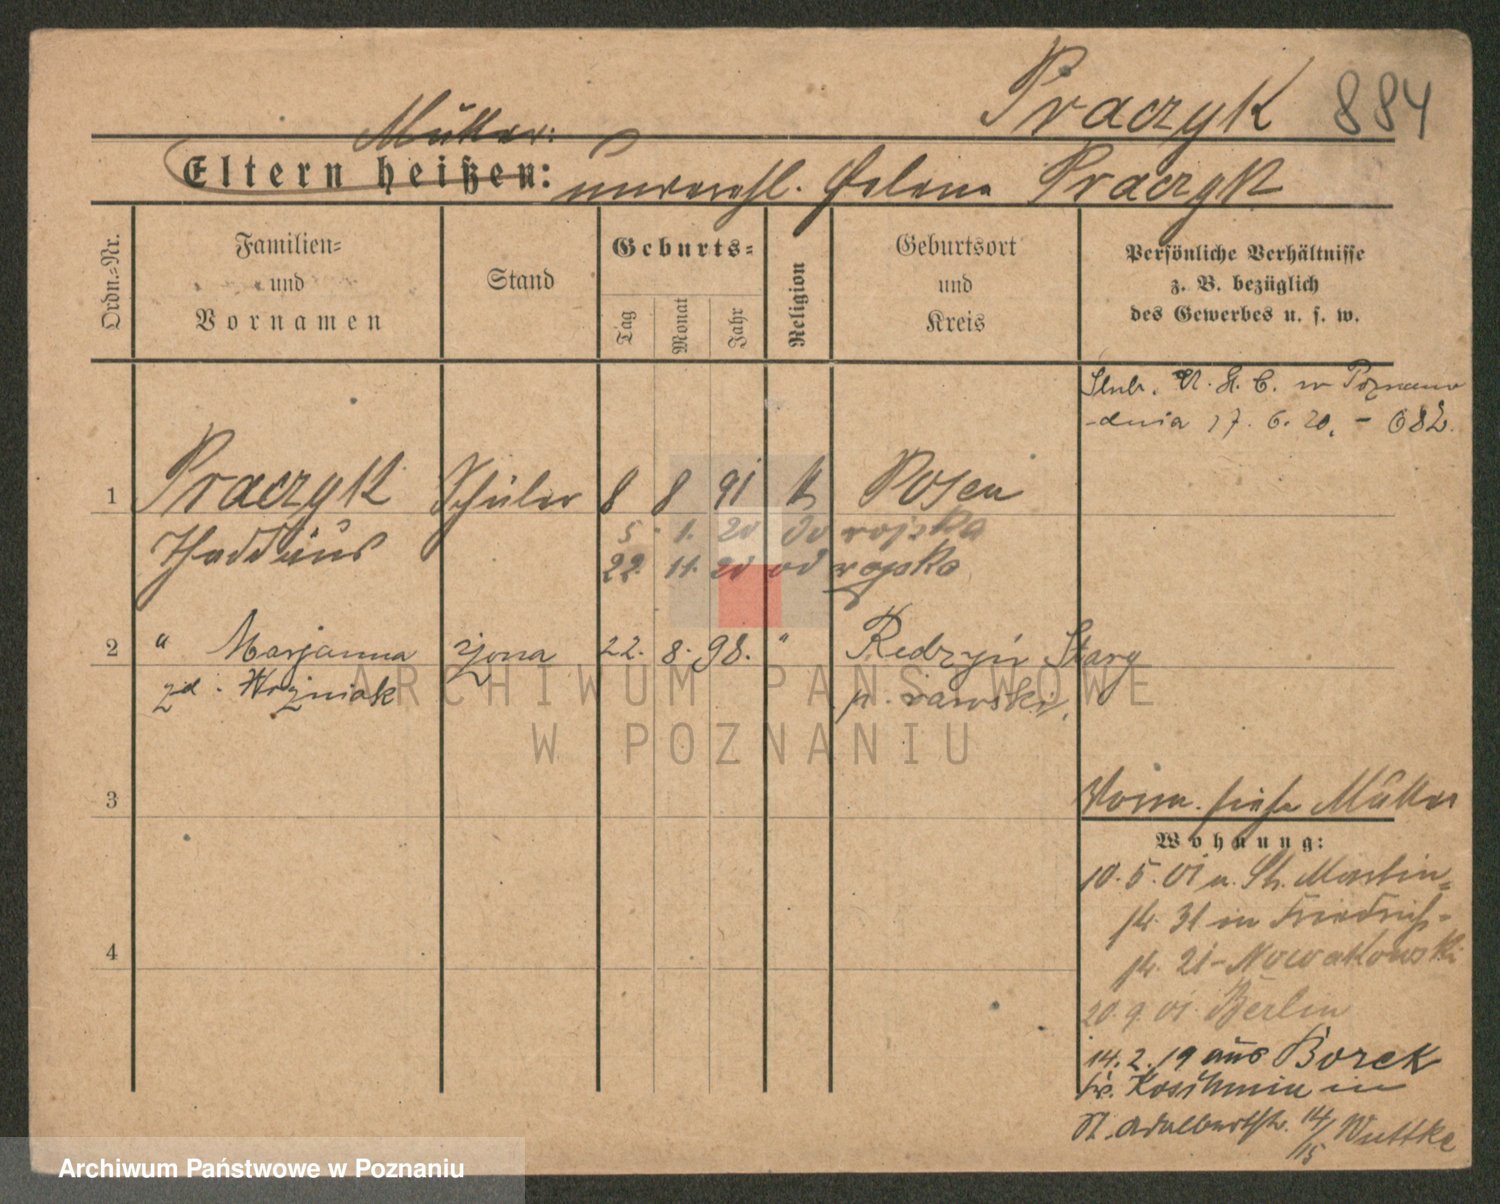 Praczyk 884
Mutter:
Eltern heißen: unverehl. Helene Praczyk
Ordn.=Nr.
Familien=
und
Vornamen
Stand
Geburts=
Tag
Monat
Jahr
Religion
Geburtsort
und
Kreis
Persönliche Verhältnisse
z. B. bezüglich
des Gewerbes u. s. w.
Ślub. U. S. C. w Poznaniu
dnia 17. 6. 20. - 682.
1 Praczyk Schüler 8 8 91 k Posen
Thaddäus
5. 1. 20 do wojska
22. 11. 20 od wojska
2 " Marjanna żona 22. 8. 98. " Redzyń Starg
zd. Woźniak
p. rawski.
3
Vorm. siehe Mutter
Wohnung:
10. 5. 01 a. St. Martin=
str. 31 in Friedrich=
str. 21 - Nowakowski
20. 9. 01 Berlin
14. 2. 19 aus Borek
Kr. Koschmin in
St. Adalbertstr. 14/15 Wuttke
4
ARCHIWUM PAŃSTWOWE
W POZNANIU
Archiwum Państwowe w Poznaniu